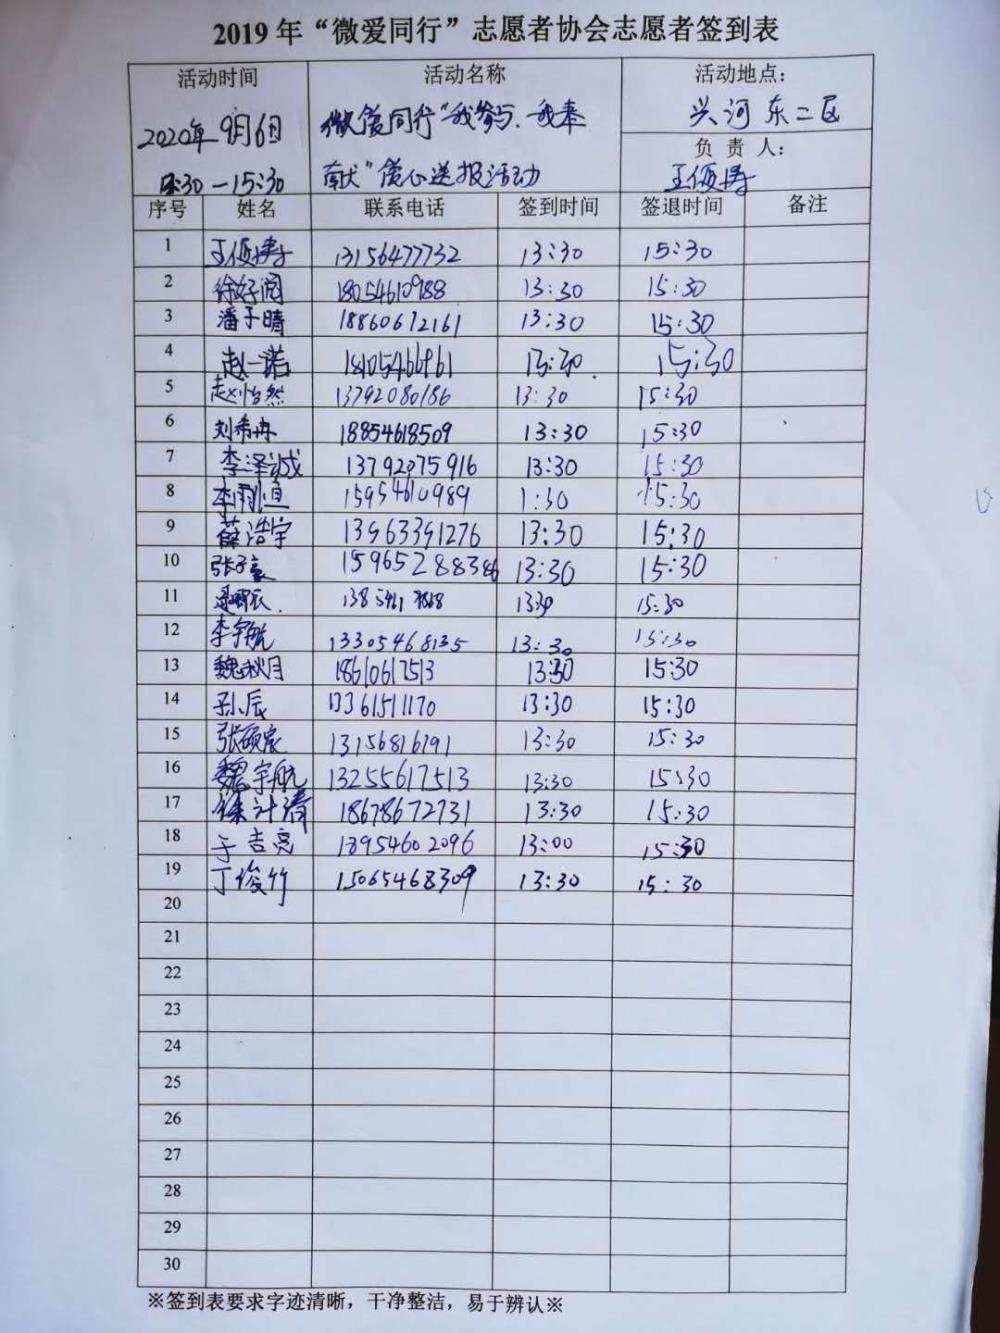 2019年“微爱同行”志愿者协会志愿者签到表
活动时间 活动名称 活动地点：
2020年9月6日 微爱同行“我参与、我奉 兴河东二区
负 责 人：
:30—15:30 献”爱心送报活动 王俊博
序号 姓名 联系电话 签到时间 签退时间 备注
1 王俊博 13156477732 13:30 15:30
2 徐好阅 18054610988 13:30 15:30
3 潘于晴 18860672161 13:30 15:30
4 赵一诺 13:30 15:30
5 赵怡然 13792080186 13:30 15:30
6 刘希冉 18854618509 13:30 15:30
7 李泽诚 13792075916 13:30 15:30
8 15954610989 1:30 15:30
9 薛浩宇 13963391276 13:30 15:30
10 张子豪 13:30 15:30
11 13:30 15:30
12 李宇航 13305468135 13:30 15:30
13 魏秋月 18610617513 13:30 15:30
14 孙辰 13361511170 13:30 15:30
15 张硕宸 13156816191 13:30 15:30
16 魏宇航 13255617513 13:30 15:30
17 徐计清 18678672731 13:30 15:30
18 于吉亮 18954602096 13:00 15:30
19 丁俊竹 15065468309 13:30 15:30
20
21
22
23
24
25
26
27
28
29
30
※签到表要求字迹清晰，干净整洁，易于辨认※